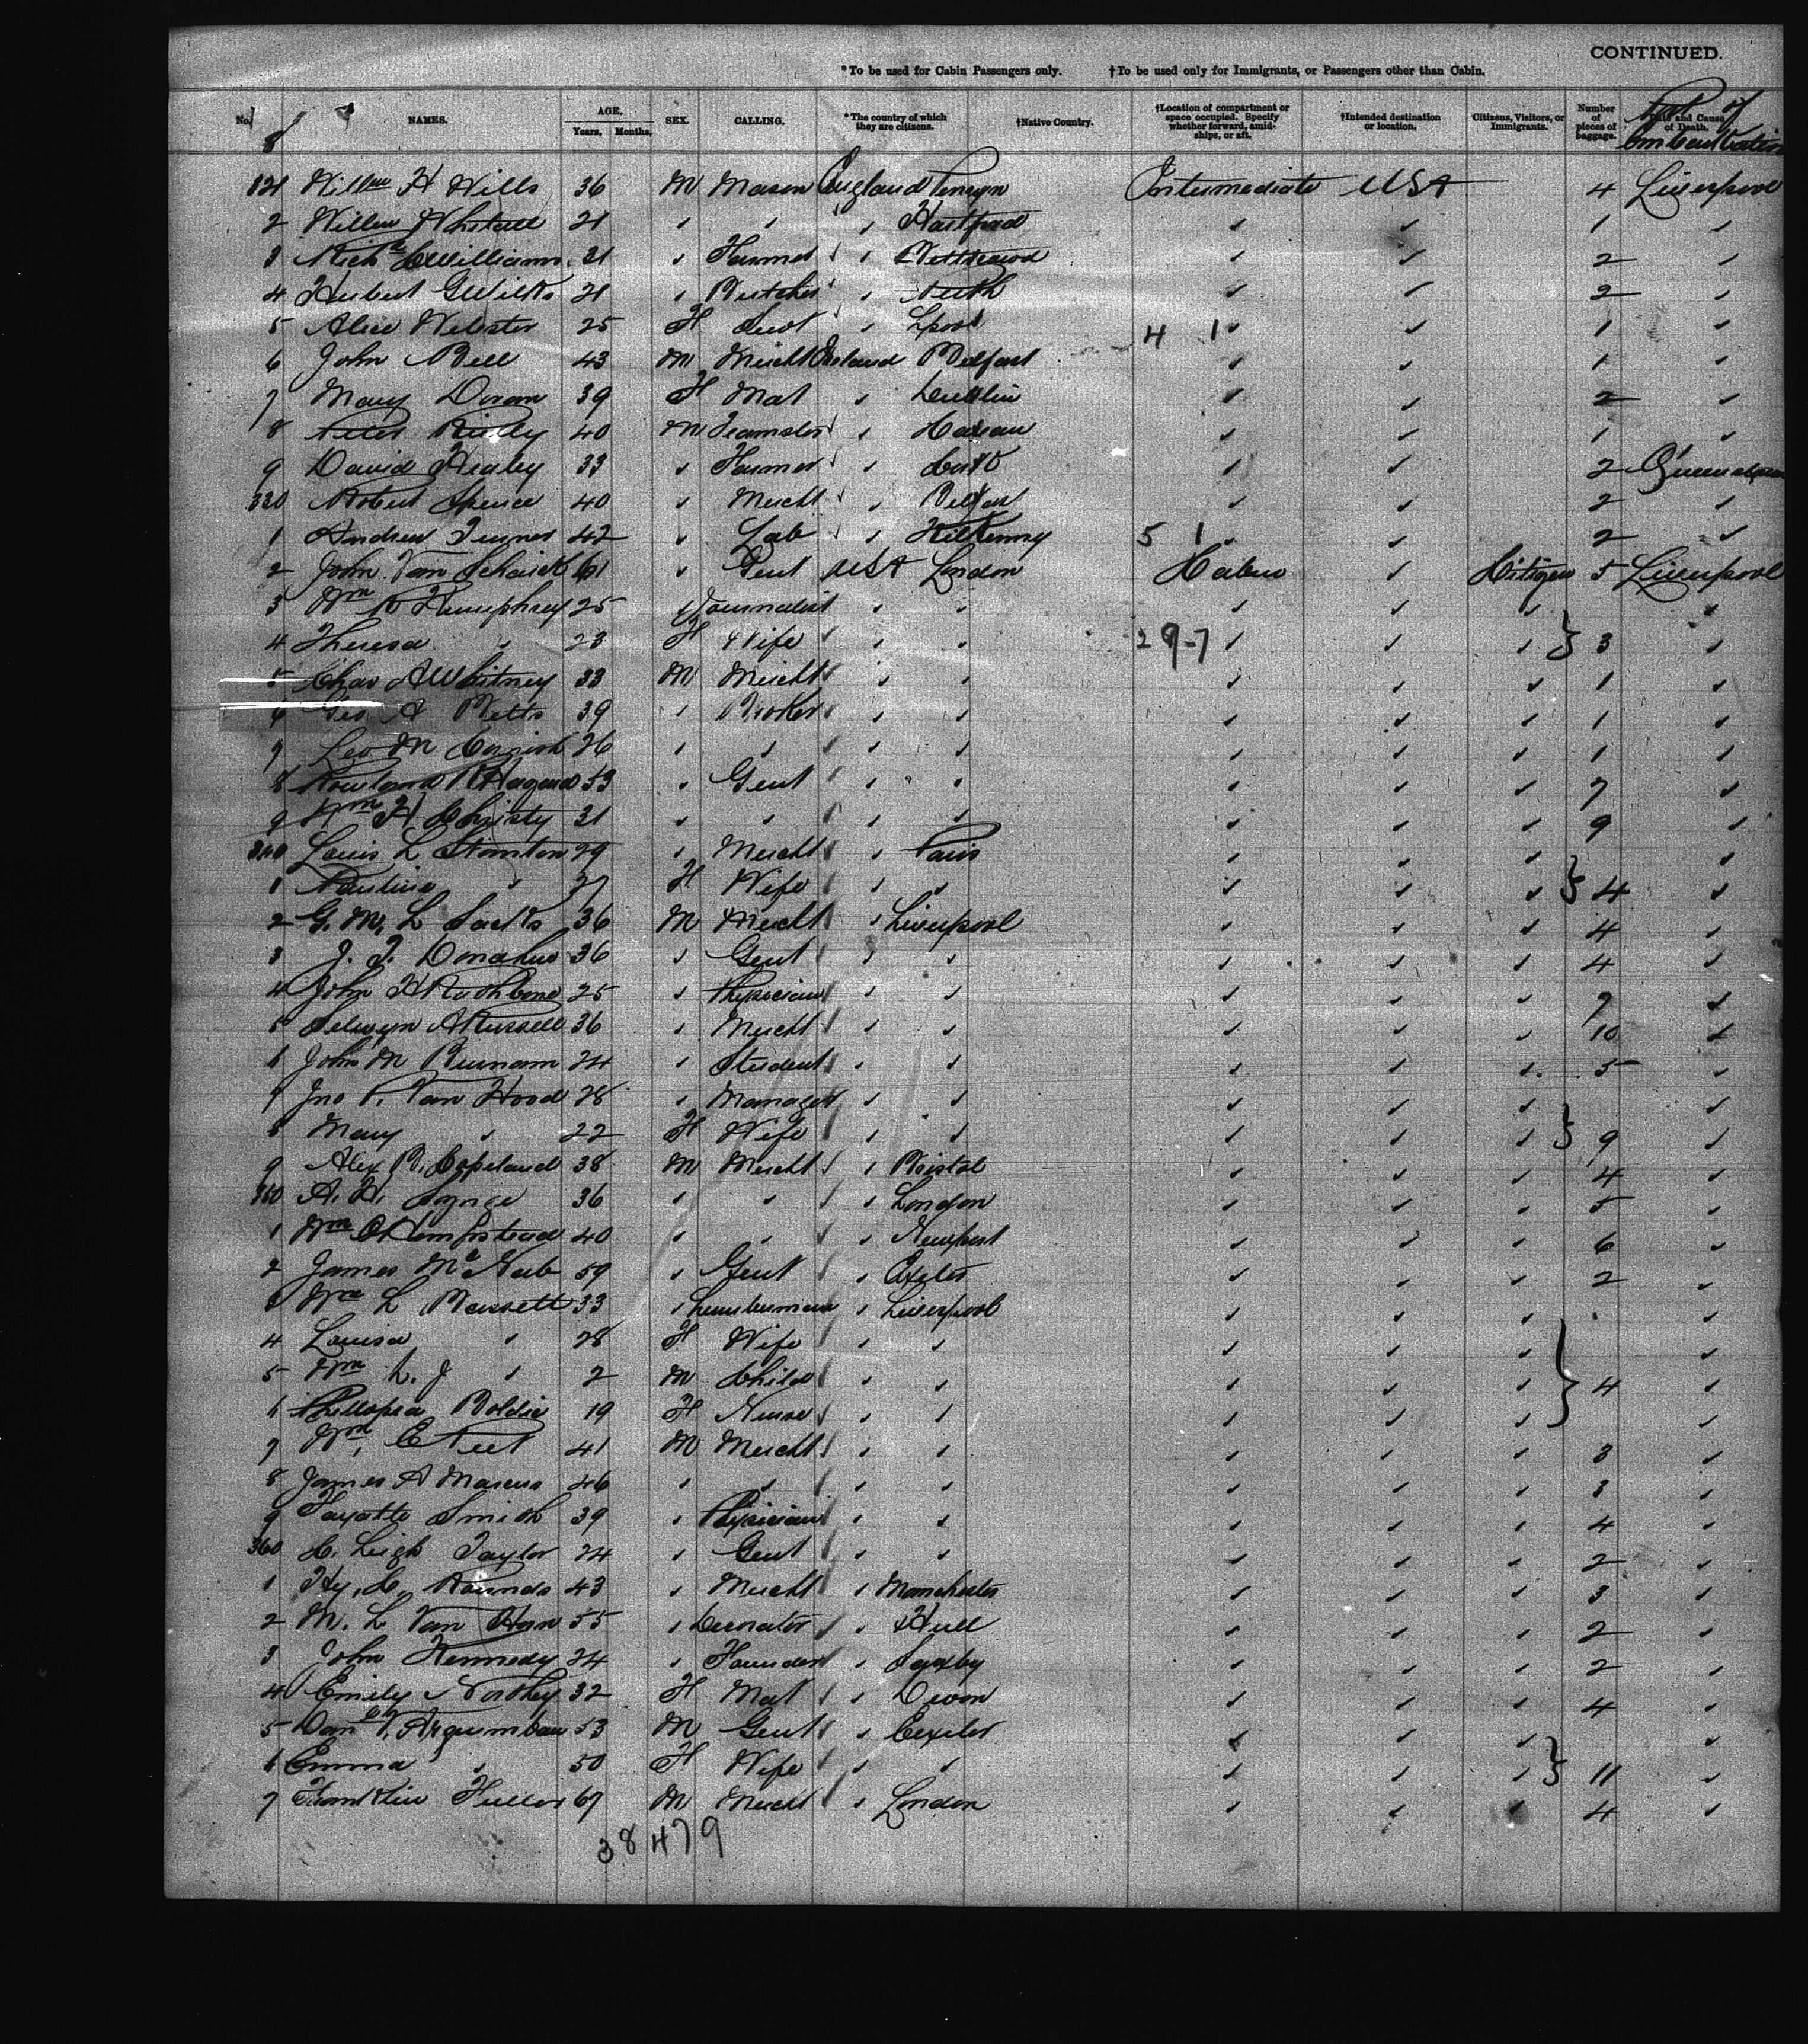 CONTINUED.
*To be used for Cabin Passengers only. †To be used only for Immigrants, or Passengers other than Cabin.
No. NAMES. AGE. Years, Months, SEX. CALLING. *The country of which they are citizens. †Native Country. †Location of compartment or space occupied. Specify whether forward, amidships, or aft. †Intended destination or location. Citizens, Visitors, or Immigrants. Number of pieces of baggage. Date and Cause of Death. Port of Embarkation
8
321 Willm H Wills 36 M Mason England Penryn Intermediate USA 4 Liverpool
2 Willm Whistall 21 " " " Hartford ✓ ✓ 1 ✓
3 Richd C Williams 31 " Farmer " ✓ ✓ 2 ✓
4 Herbert G Wilks 21 " Butcher " Neath ✓ ✓ 2 ✓
5 Alice Webster 25 F Servt " Lpool 4 1 ✓ ✓ 1 ✓
6 John Bell 43 M Mercht Ireland Belfast ✓ ✓ 1 ✓
7 Mary Doran 39 F Mat " Dublin ✓ ✓ 2 ✓
8 Peter Reilly 40 M Teamster " Cavan ✓ ✓ 1 ✓
9 David Healey 33 " Farmer " Cork ✓ ✓ 2 Queenstown
330 Robert Spence 40 " Mercht " Belfast ✓ ✓ 2 ✓
1 Andrew Turner 42 " Lab " Kilkenny 5 1 ✓ ✓ 2 ✓
2 John Van Schaick 61 " Gent USA London Cabin ✓ Citizen 5 Liverpool
3 Wm R Humphrey 25 " Journalist " " ✓ ✓ ✓ ✓
4 Theresa " 23 F Wife " " 29-7 ✓ ✓ ✓ } 3 ✓
5 Chas A Whitney 33 M Mercht " " ✓ ✓ ✓ 1 ✓
6 Geo A Betts 39 " Broker " " ✓ ✓ ✓ 1 ✓
7 Leo M 26 " " " " ✓ ✓ ✓ 1 ✓
8 Rowland R Hazard 53 " Gent " " ✓ ✓ ✓ 7 ✓
9 Wm H Christy 31 " " " " ✓ ✓ ✓ 9 ✓
340 Louis L Stanton 29 " Mercht " Paris ✓ ✓ ✓ ✓
1 Pauline " 27 F Wife " " ✓ ✓ ✓ } 4 ✓
2 G. M. L Sacks 36 M Mercht " Liverpool ✓ ✓ ✓ 4 ✓
3 J. J. Donahue 36 " Gent " " ✓ ✓ ✓ 4 ✓
4 John H Rathbone 25 " Physician " " ✓ ✓ ✓ 7 ✓
5 Selwyn A Russell 36 " Mercht " " ✓ ✓ ✓ 10 ✓
6 John M Burnam 24 " Student " " ✓ ✓ ✓ 5 ✓
7 Jno P. Van Hood 28 " Manager " " ✓ ✓ ✓ ✓
8 Mary " 22 F Wife " " ✓ ✓ ✓ } 9 ✓
9 Alex B. Copeland 38 M Mercht " Bristol ✓ ✓ ✓ 4 ✓
350 A. H. 36 " " " London ✓ ✓ ✓ 5 ✓
1 Wm O Hempstead 40 " " " Newport ✓ ✓ ✓ 6 ✓
2 James McNab 59 " Gent " Exeter ✓ ✓ ✓ 2 ✓
3 Wm L Bassett 33 " Lumberman " Liverpool ✓ ✓ ✓ ✓
4 Louisa " 28 F Wife " " ✓ ✓ ✓ ✓
5 Wm L. J " 2 M Child " " ✓ ✓ ✓ } 4 ✓
6 Boldin 19 F Nurse " " ✓ ✓ ✓ ✓
7 Wm E Peet 41 M Mercht " " ✓ ✓ ✓ 3 ✓
8 James A Marcus 46 " " " " ✓ ✓ ✓ 3 ✓
9 Fayette Smith 39 " Physician " " ✓ ✓ ✓ 4 ✓
360 C. Leigh Taylor 24 " Gent " " ✓ ✓ ✓ 2 ✓
1 Hy. C. Rounds 43 " Mercht " Manchester ✓ ✓ ✓ 3 ✓
2 M. L Van Horn 55 " Decorator " Hull ✓ ✓ ✓ 2 ✓
3 John Kennedy 24 " Founder " Saxby ✓ ✓ ✓ 2 ✓
4 Emily Northey 32 F Mat " Devon ✓ ✓ ✓ 4 ✓
5 Danl V. Argumbau 53 M Gent " Exeter ✓ ✓ ✓ ✓
6 Emma " 50 F Wife " " ✓ ✓ ✓ } 11 ✓
7 Franklin Fuller 67 M Mercht " London ✓ ✓ ✓ 4 ✓
38479